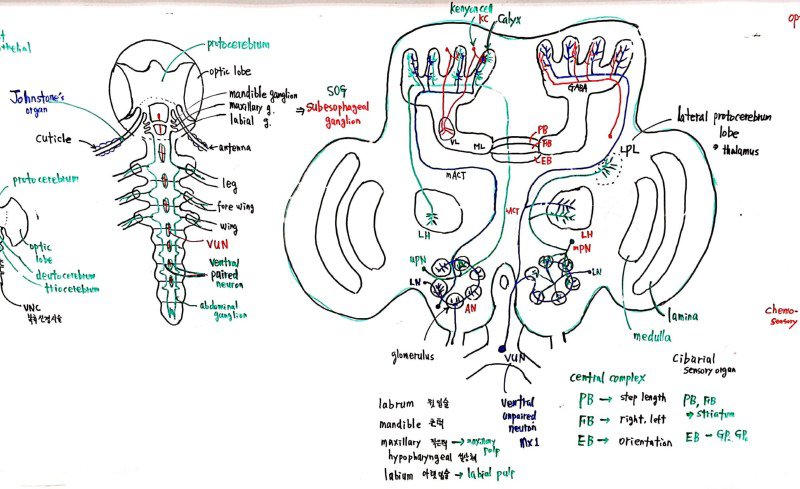 protocerebrum
optic lobe
mandible ganglion
maxillary g.
labial g.
Johnstone's
organ
cuticle
antenna
leg
fore wing
wing
VUN
Ventral
paired
neuron
abdominal
ganglion
protocerebrum
optic
lobe
deutocerebrum
tritocerebrum
VNC
SOG
⇒ Subesophageal
ganglion
kenyon cell
KC
Calyx
GABA
VL
ML
PB
FB
EB
mACT
LPL
lateral protocerebrum
lobe
thalamus
LH
ACT
LH
mPN
uPN
LN
LN
AN
glomerulus
VUN
lamina
medulla
op
chemo-
sensory
labrum 윗입술
mandible 큰턱
maxillary 작은턱 → maxillary
pulp
hypopharyngeal
labium 아랫입술 → labial pulp
Ventral
unpaired
neuron
Mx1
central complex
PB → step length
FB → right, left
EB → orientation
Cibarial
sensory organ
PB, FB
→ striatum
EB - GPe, GPi